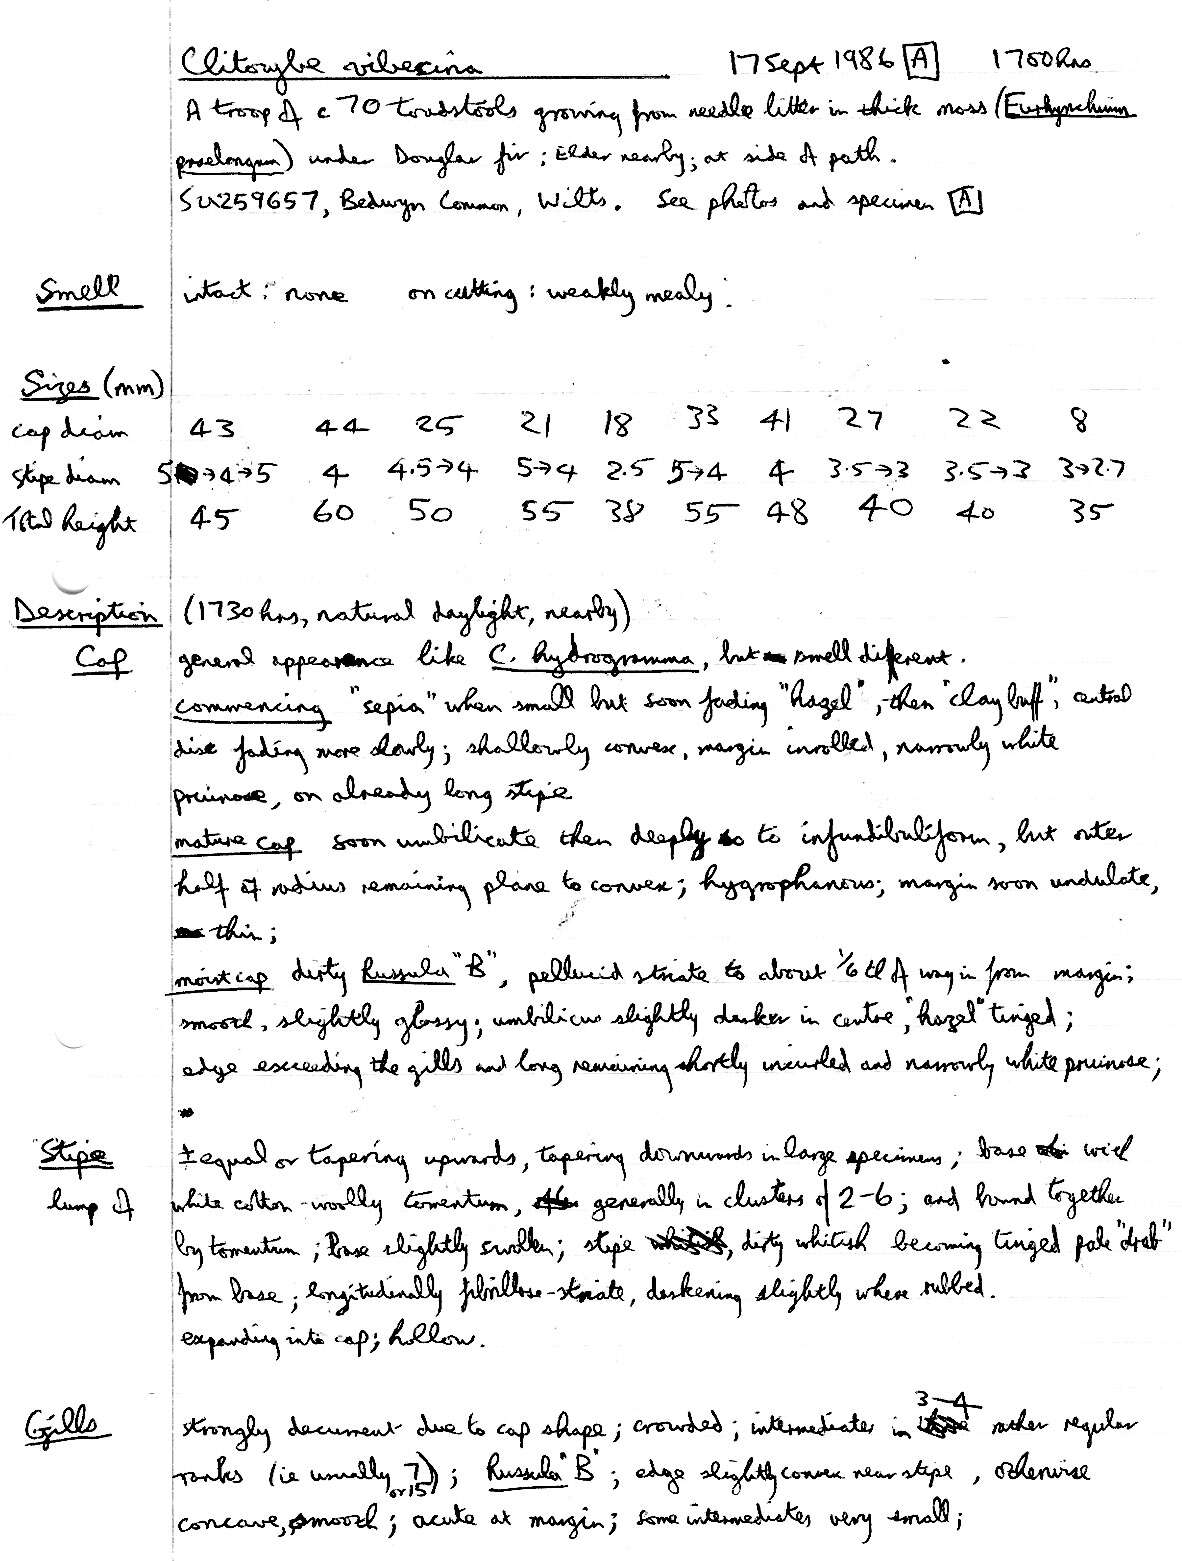 Clitocybe vibecina 17 Sept 1986 [A] 1700hrs
A troop of c 70 toadstools growing from needle litter in thick moss (Eurhynchium
praelongum) under Douglas fir; Elder nearby; at side of path.
SU259657, Bedwyn Common, Wilts. See photos and specimen [A]
Smell intact: none on cutting: weakly mealy.
Sizes (mm)
cap diam 43 44 25 21 18 33 41 27 22 8
stipe diam 5→4→5 4 4.5→4 5→4 2.5 5→4 4 3.5→3 3.5→3 3→2.7
Total height 45 60 50 55 38 55 48 40 40 35
Description (1730hrs, natural daylight, nearby)
Cap general appearance like C. hydrogramma, but smell different.
commencing "sepia" when small but soon fading "hazel", then "clay buff", central
disc fading more slowly; shallowly convex, margin inrolled, narrowly white
pruinose, on already long stipe
mature cap soon umbilicate then deeply so to infundibuliform, but outer
half of radius remaining plane to convex; hygrophanous; margin soon undulate,
thin;
moist cap dirty Russula "B", pellucid striate to about 1/6 th of way in from margin;
smooth, slightly glossy; umbilicus slightly darker in centre, "hazel" tinged;
edge exceeding the gills and long remaining shortly incurled and narrowly white pruinose;
Stipe ± equal or tapering upwards, tapering downwards in large specimens; base with
lump of white cotton-woolly tomentum, generally in clusters of 2-6; and bound together
by tomentum; base slightly swollen; stipe dirty whitish becoming tinged pale "drab"
from base; longitudinally fibrillose-striate, darkening slightly where rubbed.
expanding into cap; hollow.
Gills strongly decurrent due to cap shape; crowded; intermediates in 3-4 rather regular
ranks (ie usually 7 or 15); Russula "B"; edge slightly convex near stipe, otherwise
concave, smooth; acute at margin; some intermediates very small;